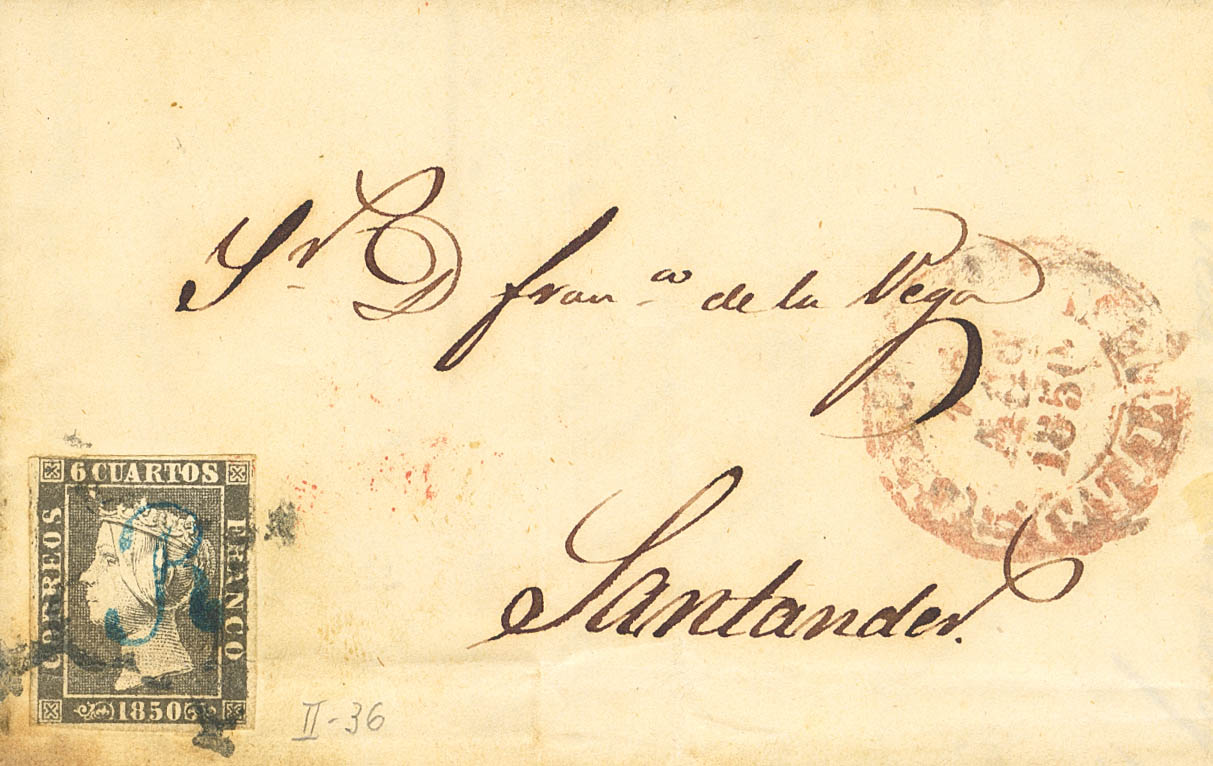 Sr. D. Fran.co de la Vega
Santander.
6 CUARTOS
CORREOS
FRANCO
R
1850
II-36
AGO
1850